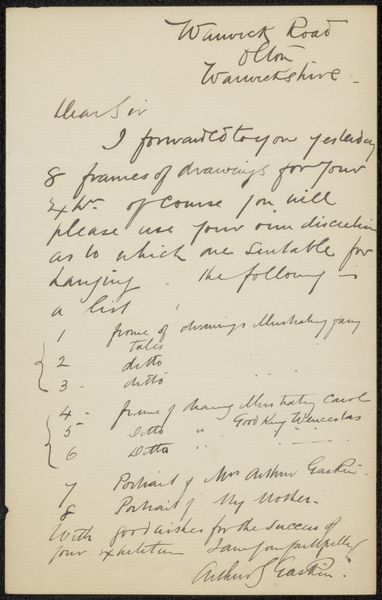 Warwick Road
Olton
Warwickshire.
Dear Sir
I forwarded to you yesterday
8 frames of drawings for your
Exhn. of course you will
please use your own discretion
as to which are suitable for
hanging. The following is
a list
1 frame of drawings illustrating fairy
tales
2 ditto
3. ditto
4. frame of drawing illustrating Carol
5 Ditto " Good King Wenceslas
6 Ditto
7 Portrait of Mrs Arthur Gaskin.
8 Portrait of My Mother.
With good wishes for the success of
your exhibition I am yours faithfully
Arthur J Gaskin.